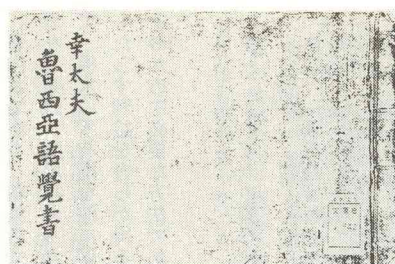 幸太夫
魯西亞語覺書